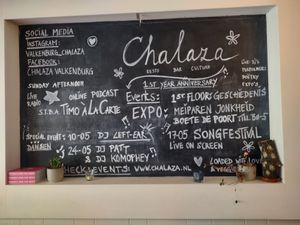 SOCIAL MEDIA
INSTAGRAM:
VALKENBURG_CHALAZA
FACEBOOK:
CHALAZA VALKENBURG
Chalaza
EETUS BAR CULTUUR
1.ST YEAR ANNIVERSARY
SUNDAY AFTERNOON
LIVE RADIO
ONLINE PODCAST
S.T.B.A TIMO À LA CARTE
Events:
1ST FLOOR: GESCHIEDENIS
EXPO:
MEIPAREN JONKHEID
BOETE DE POORT
POETRY
EXPO'S
SPECIAL EVENT:
10-05 DJ LEFT-EAR
17-05 SONGFESTIVAL
LIVE ON SCREEN
24-05 DJ PATT
& DJ KOMOPHEY
LOADED WITH LOVE
CHECK EVENTS: WWW.CHALAZA.NL